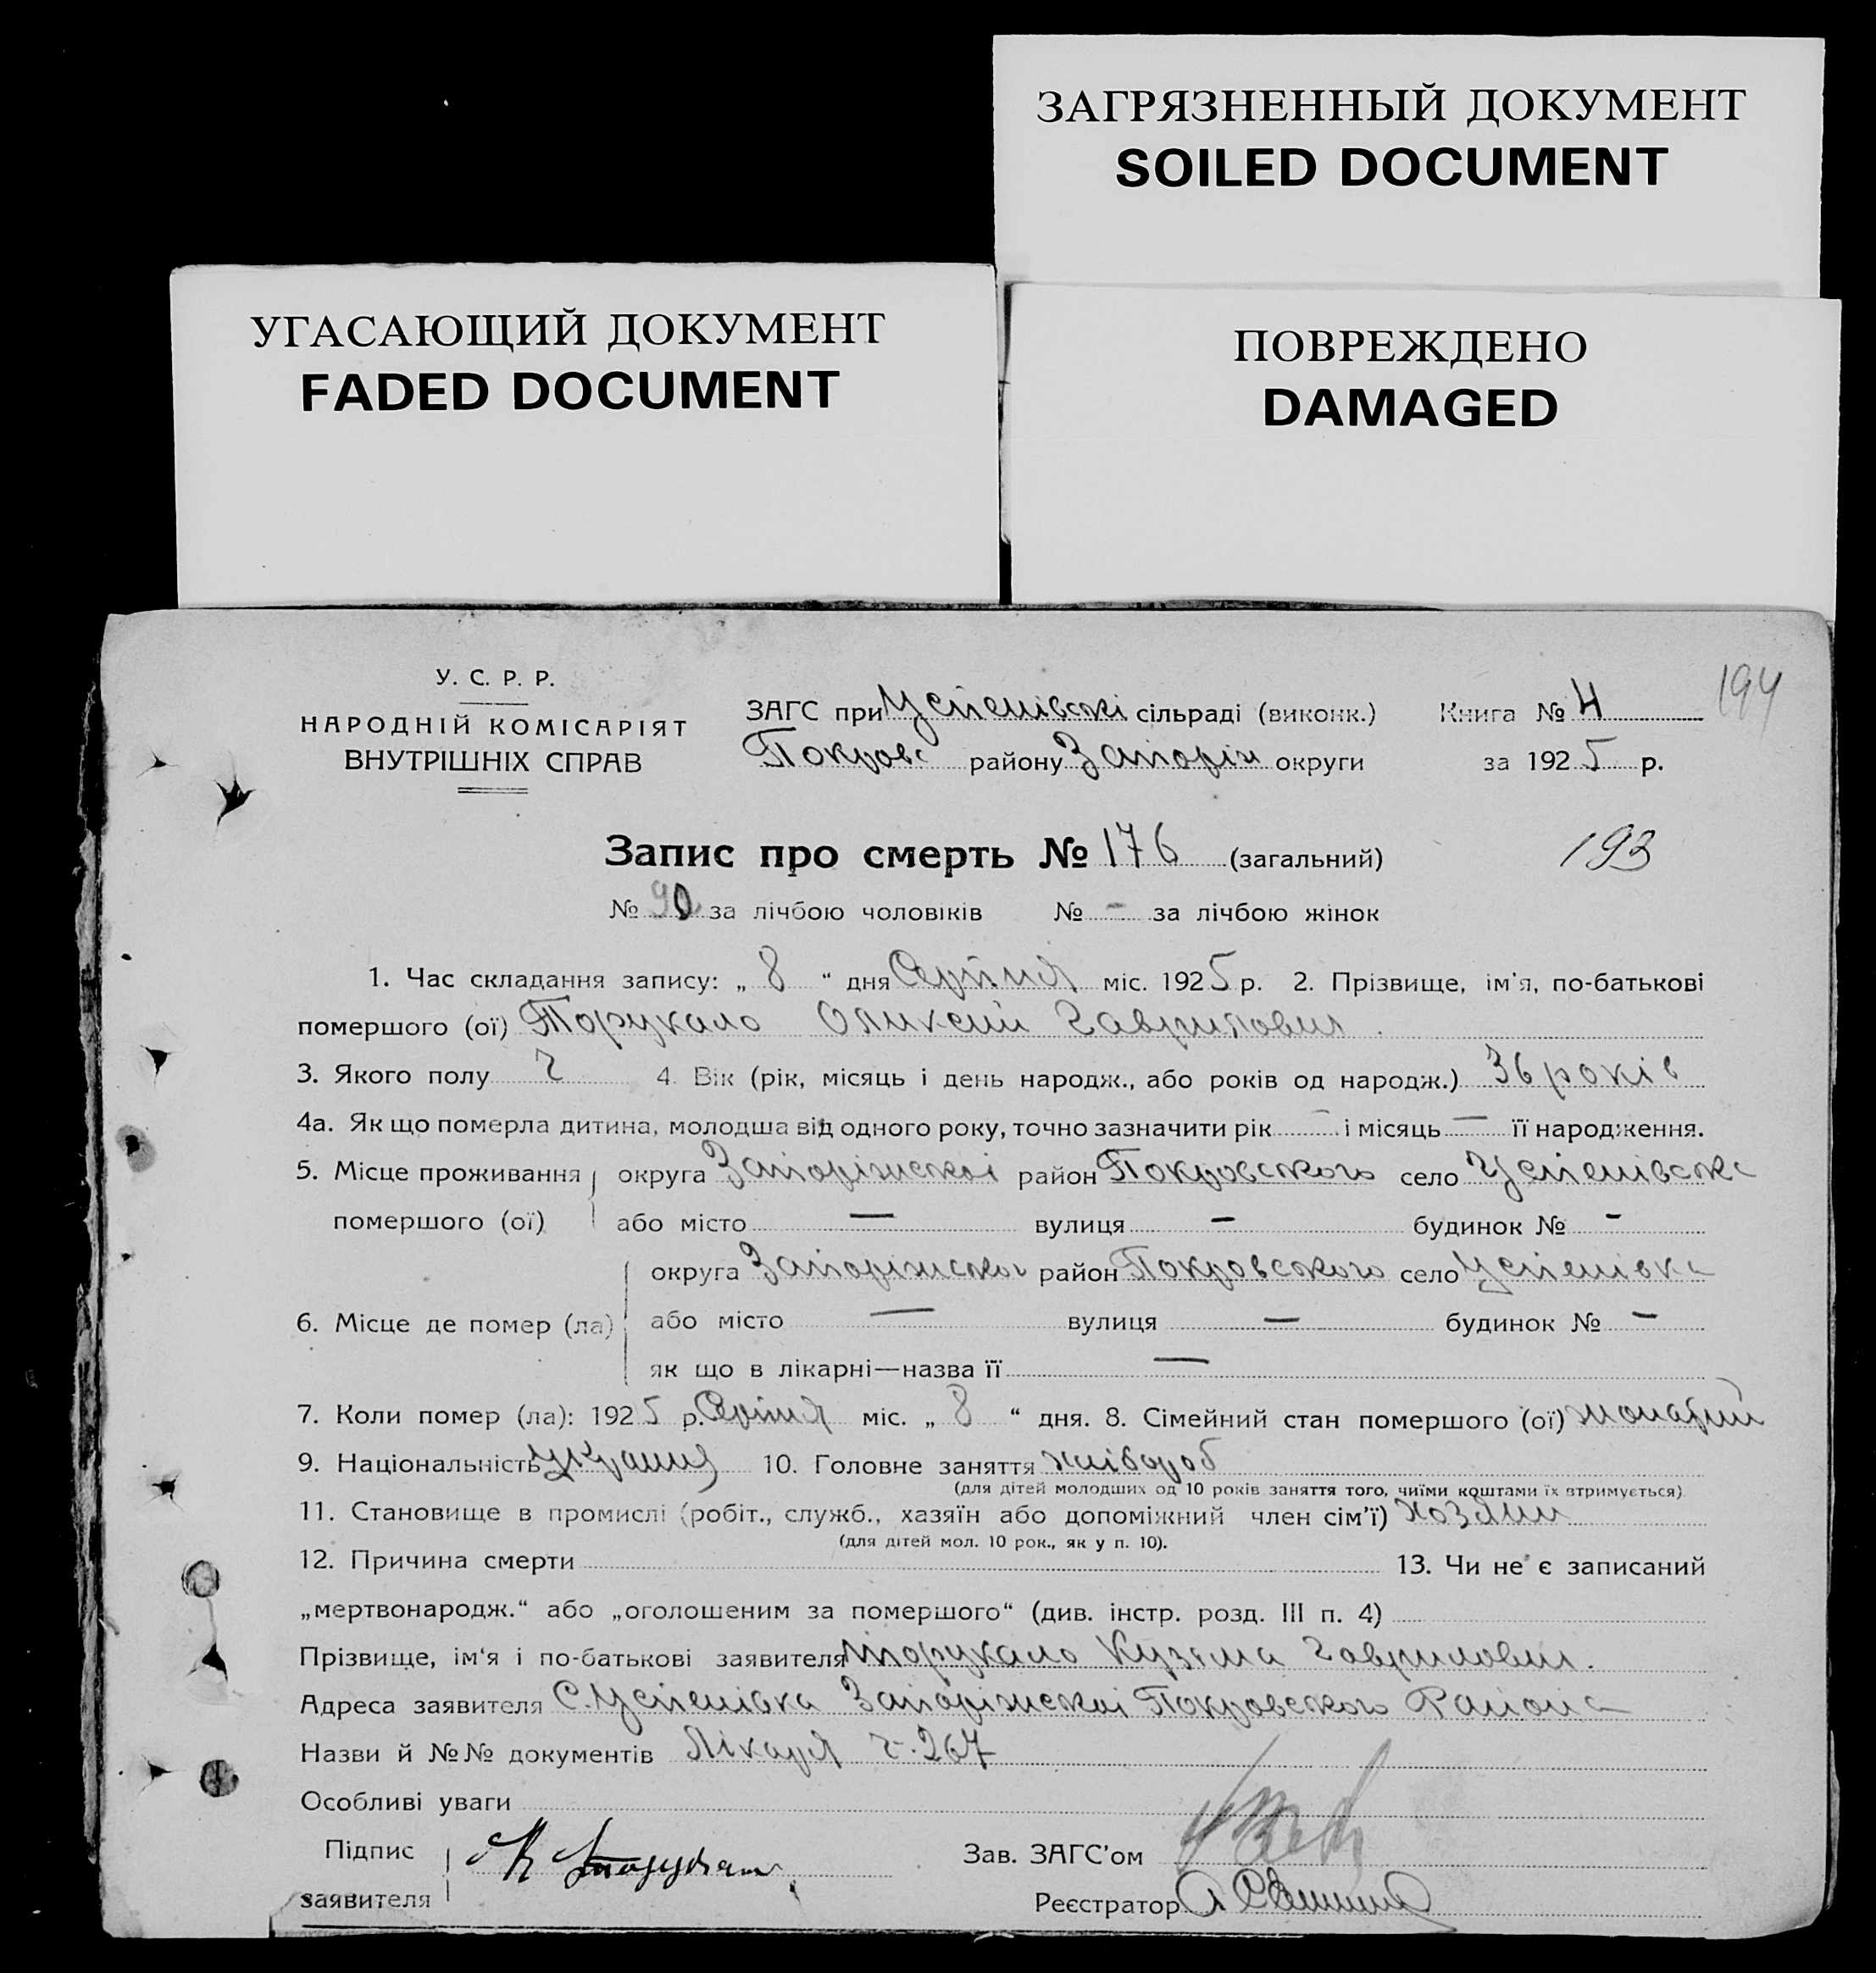 ЗАГРЯЗНЕННЫЙ ДОКУМЕНТ
SOILED DOCUMENT
УГАСАЮЩИЙ ДОКУМЕНТ
FADED DOCUMENT
ПОВРЕЖДЕНО
DAMAGED
194
У. С. Р. Р.
НАРОДНІЙ КОМІСАРІЯТ
ВНУТРІШНІХ СПРАВ
ЗАГС при Успенівскі сільраді (виконк.) Книга № 4
Покровс району Запоріж округи за 1925 р.
Запис про смерть № 176 (загальний) 193
№ 90 за лічбою чоловіків № - за лічбою жінок
1. Час складання запису: „ 8 “ дня Серпня міс. 1925 р. 2. Прізвище, ім'я, по-батькові
помершого (ої) Торукало Олексій Гаврилович.
3. Якого полу ч 4. Вік (рік, місяць і день народж., або років од народж.) 36 років
4а. Як що померла дитина, молодша від одного року, точно зазначити рік — і місяць — її народження.
5. Місце проживання округа Запоріжскої район Покровського село Успенівска
помершого (ої) або місто — вулиця - будинок № -
округа Запоріжскої район Покровського село Успенівка
6. Місце де помер (ла) або місто — вулиця — будинок № -
як що в лікарні—назва її —
7. Коли помер (ла): 1925 р. Серпня міс. „ 8 “ дня. 8. Сімейний стан помершого (ої) жонатий
9. Національність 10. Головне заняття хлібороб
(для дітей молодших од 10 років заняття того, чиїми коштами їх втримується)
11. Становище в промислі (робіт., служб., хазяїн або допоміжний член сім'ї) хозяин
(для дітей мол. 10 рок., як у п. 10).
12. Причина смерти 13. Чи не є записаний
„мертвонародж.“ або „оголошеним за помершого“ (див. інстр. розд. III п. 4)
Прізвище, ім'я і по-батькові заявителя Торукало Кузьма Гаврилович.
Адреса заявителя С. Успенівка Запоріжскої Покровського Района
Назви й №№ документів Лікаря ч. 267
Особливі уваги
Підпис
заявителя
Зав. ЗАГС'ом
Реєстратор